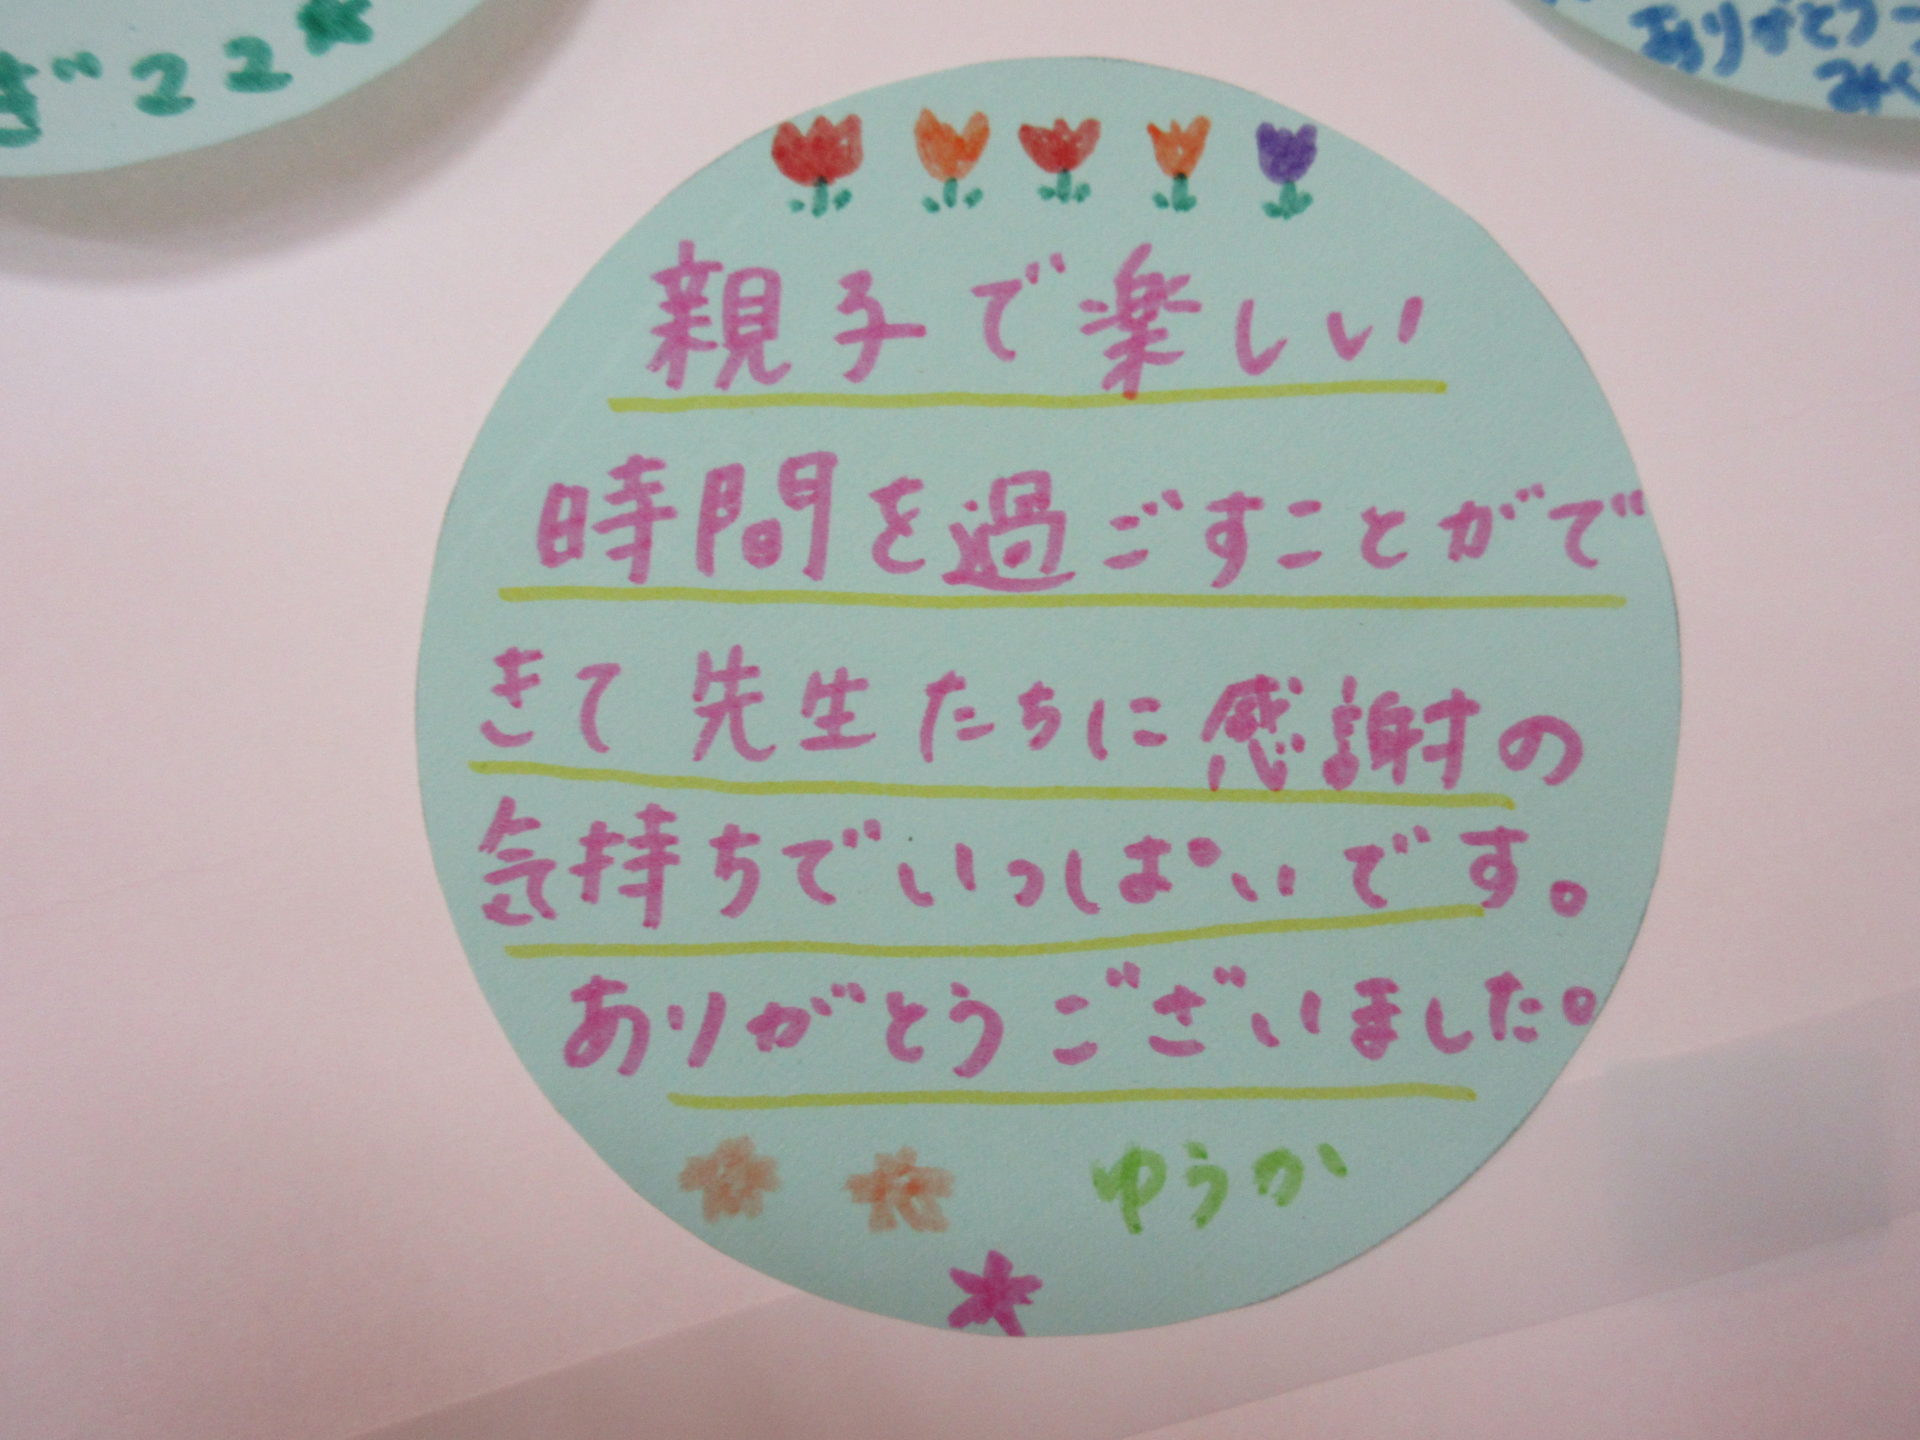 親子で楽しい
時間を過ごすことがで
きて 先生たちに感謝の
気持ちでいっぱいです。
ありがとうございました。
ゆうか
ありがとう